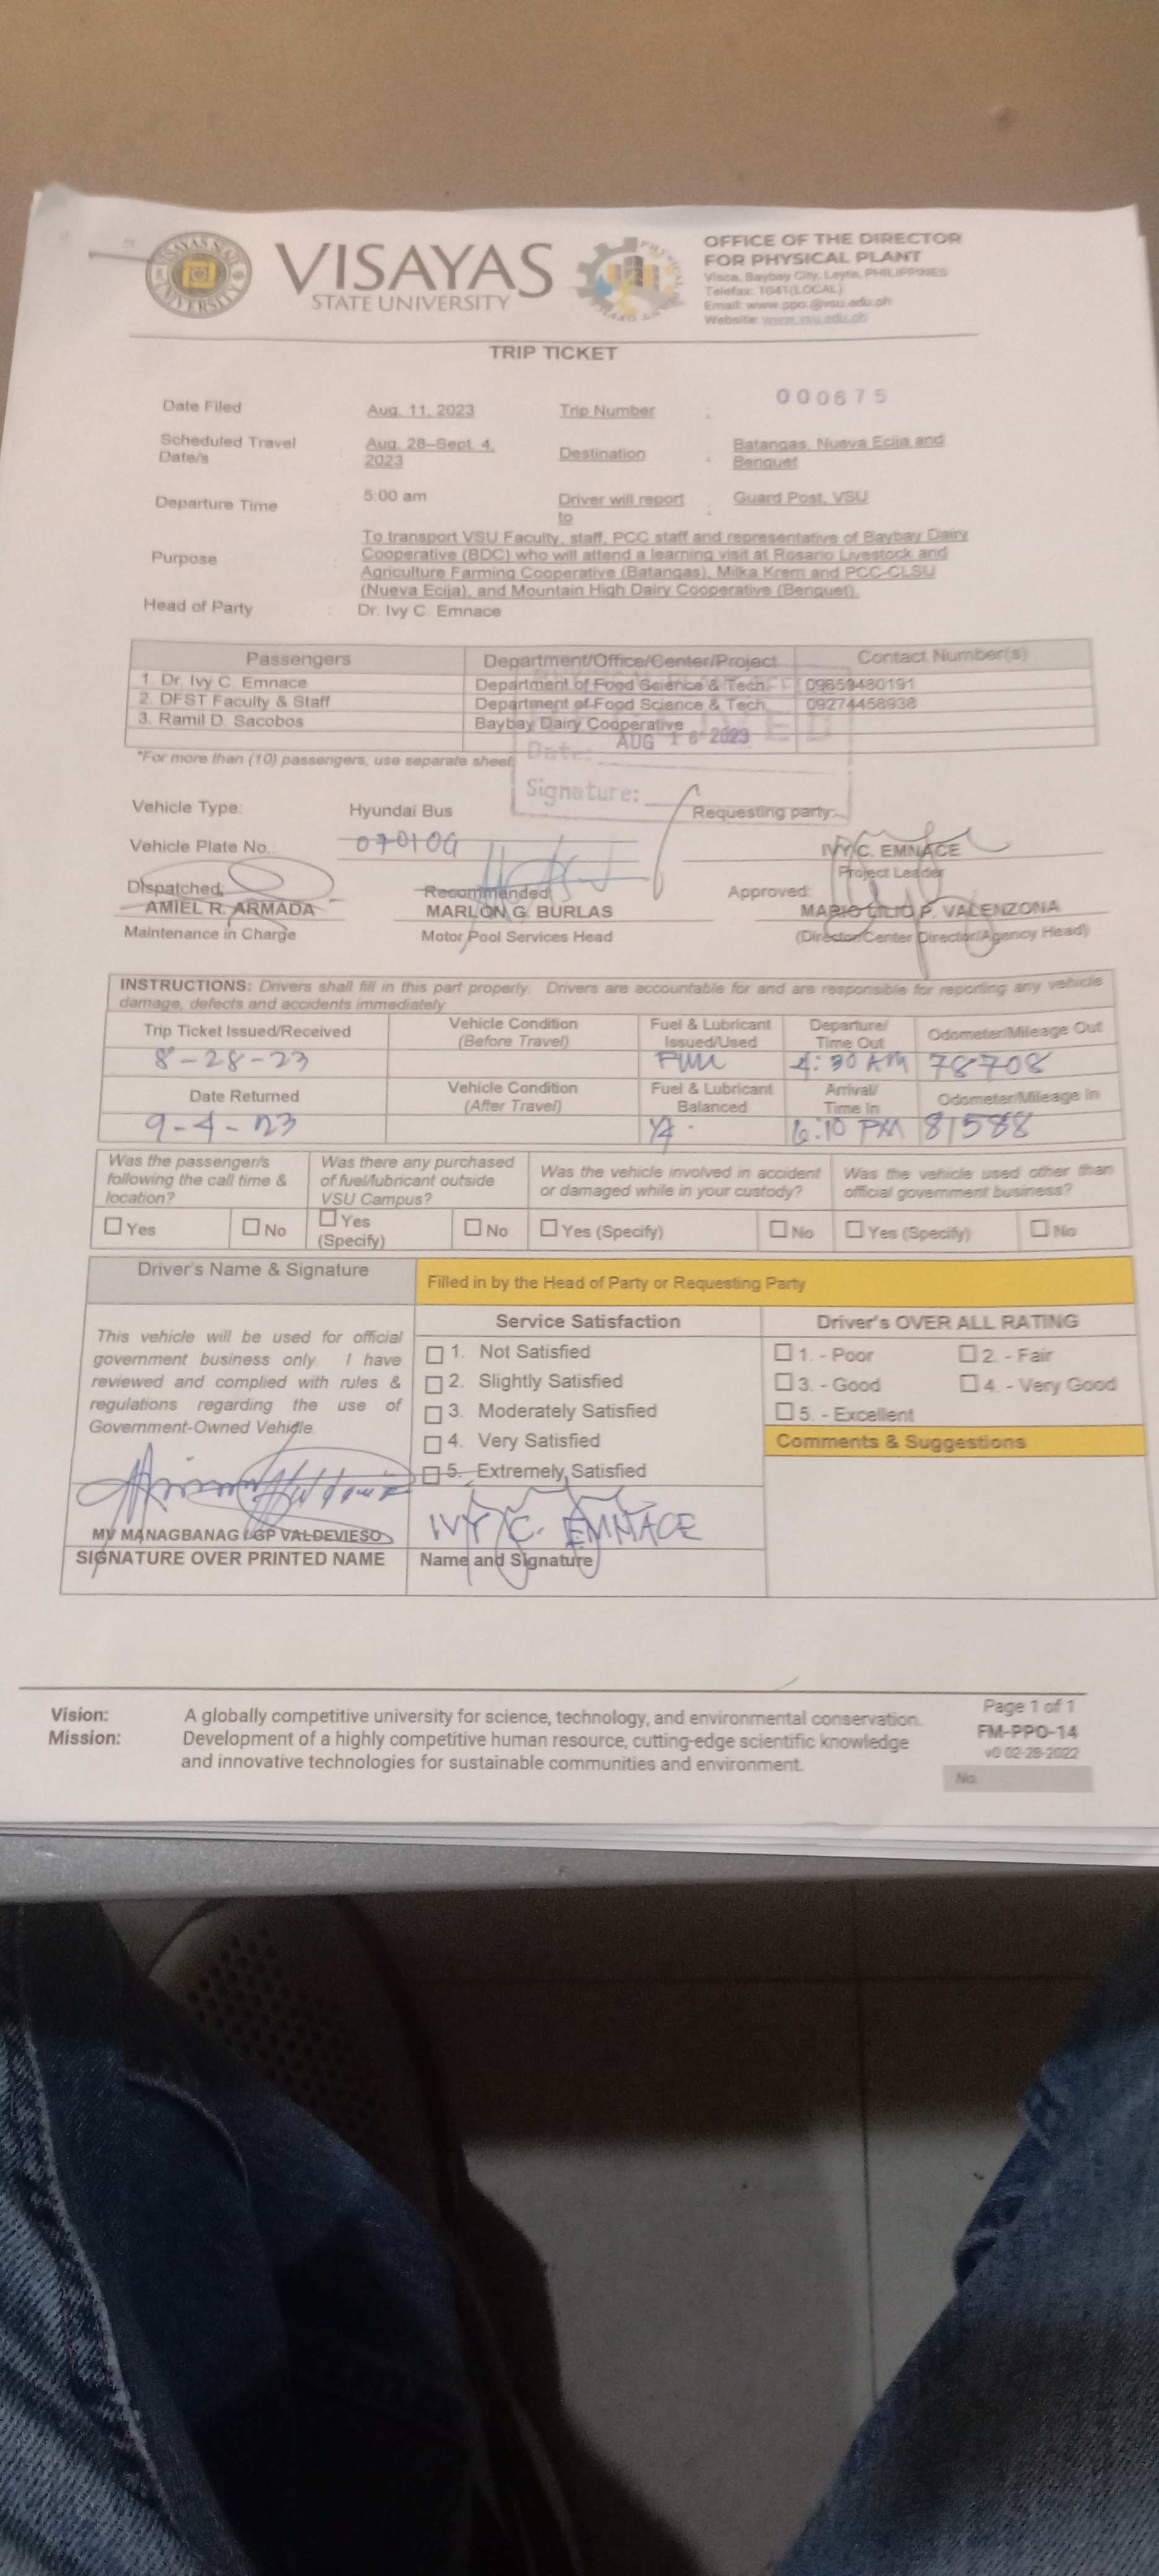 VISAYAS STATE UNIVERSITY
VISAYAS
STATE UNIVERSITY
OFFICE OF THE DIRECTOR
FOR PHYSICAL PLANT
Visca, Baybay City, Leyte, PHILIPPINES
Telefax: 1041(LOCAL)
Email: www.ppo.@vsu.edu.ph
Website: www.vsu.edu.ph
TRIP TICKET
Date Filed Aug. 11, 2023 Trip Number : 000675
Scheduled Travel Date/s : Aug. 28–Sept. 4, 2023 Destination : Batangas, Nueva Ecija and Benguet
Departure Time 5:00 am Driver will report to : Guard Post, VSU
Purpose : To transport VSU Faculty, staff, PCC staff and representative of Baybay Dairy
Cooperative (BDC) who will attend a learning visit at Rosario Livestock and
Agriculture Farming Cooperative (Batangas), Milka Krem and PCC-CLSU
(Nueva Ecija), and Mountain High Dairy Cooperative (Benguet).
Head of Party : Dr. Ivy C. Emnace
Passengers Department/Office/Center/Project Contact Number(s)
1. Dr. Ivy C. Emnace Department of Food Science & Tech. 09659480191
2. DFST Faculty & Staff Department of Food Science & Tech. 09274458938
3. Ramil D. Sacobos Baybay Dairy Cooperative
Date: AUG 16 2023
*For more than (10) passengers, use separate sheet
Signature:
Vehicle Type: Hyundai Bus Requesting party:
Vehicle Plate No.: 070109 IVY C. EMNACE
Project Leader
Dispatched: Recommended: Approved:
AMIEL R. ARMADA MARLON G. BURLAS MARIO LILIO P. VALENZONA
Maintenance in Charge Motor Pool Services Head (Director/Center Director/Agency Head)
INSTRUCTIONS: Drivers shall fill in this part properly. Drivers are accountable for and are responsible for reporting any vehicle
damage, defects and accidents immediately
Trip Ticket Issued/Received Vehicle Condition (Before Travel) Fuel & Lubricant Issued/Used Departure/ Time Out Odometer/Mileage Out
8-28-23 Full 4:30 AM 78708
Date Returned Vehicle Condition (After Travel) Fuel & Lubricant Balanced Arrival/ Time In Odometer/Mileage In
9-4-23 6:10 PM 81588
Was the passenger/s following the call time & location? Was there any purchased of fuel/lubricant outside VSU Campus? Was the vehicle involved in accident or damaged while in your custody? Was the vehicle used other than official government business?
☐ Yes ☐ No ☐ Yes (Specify) ☐ No ☐ Yes (Specify) ☐ No ☐ Yes (Specify) ☐ No
Driver's Name & Signature Filled in by the Head of Party or Requesting Party
This vehicle will be used for official
government business only. I have
reviewed and complied with rules &
regulations regarding the use of
Government-Owned Vehicle.
MV MANAGBANAG / GP VALDEVIESO
SIGNATURE OVER PRINTED NAME
Service Satisfaction
☐ 1. Not Satisfied
☐ 2. Slightly Satisfied
☐ 3. Moderately Satisfied
☐ 4. Very Satisfied
☐ 5. Extremely Satisfied
IVY C. EMNACE
Name and Signature
Driver's OVER ALL RATING
☐ 1. - Poor ☐ 2. - Fair
☐ 3. - Good ☐ 4. - Very Good
☐ 5. - Excellent
Comments & Suggestions
Vision: A globally competitive university for science, technology, and environmental conservation.
Mission: Development of a highly competitive human resource, cutting-edge scientific knowledge
and innovative technologies for sustainable communities and environment.
Page 1 of 1
FM-PPO-14
v0 02-28-2022
No.